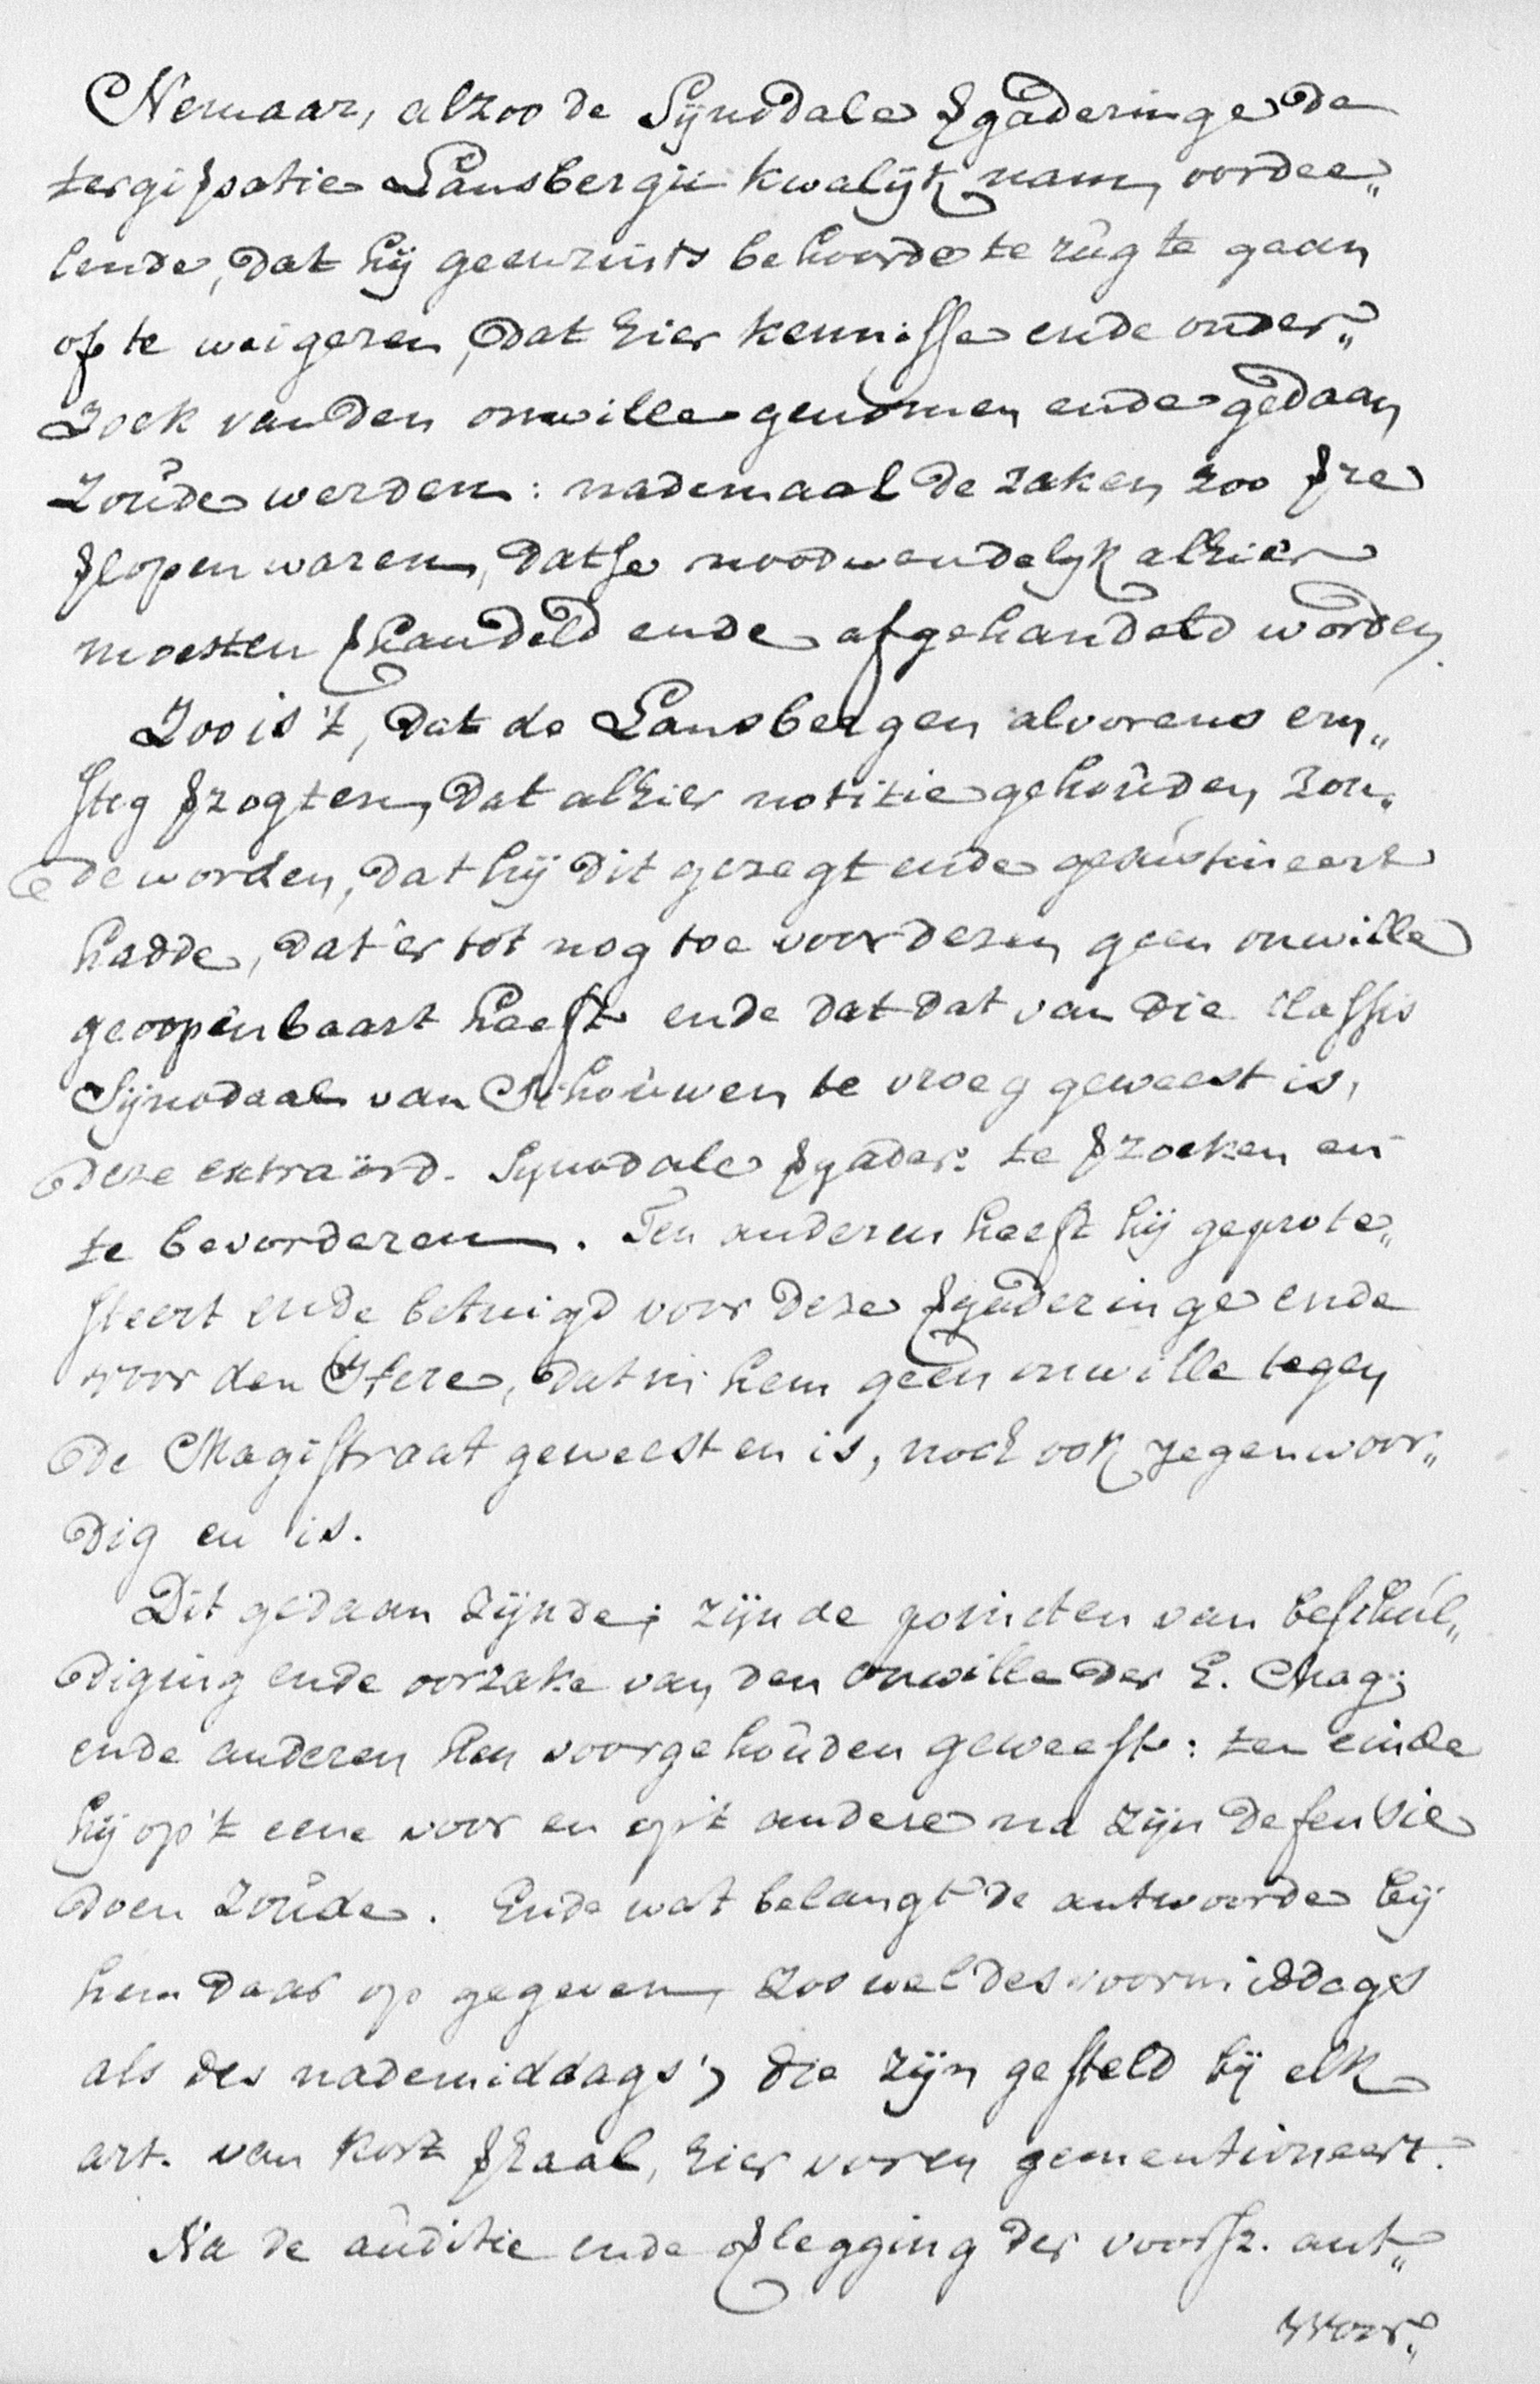 Nemaar, alzoo de Sijnodale ꝟgaderinge de
tergiꝟsatie Lansbergii kwalijk nam, oordee„
lende, dat hij geenzints behoorde te rûg te gaan
of te weigeren, dat hier kennisse ende onder„
zoek van den onwille genomen ende gedaan
zoûde werden: nademaal de zaken zoo ꝟre
ꝟlopen waren, datse noodwendelijk alhier
moesten ꝟhandeld ende afgehandeld worden.
Zoo is 't, dat de Lansbergen alvorens ern„
stig ꝟzogten, dat alhier notitie gehoûden zou„
de worden, dat hij dit gezegt ende gesûstineert
hadde, dat 'er tot nog toe voor dezen geen onwille
geoopenbaart heeft ende dat dat van die classis
Sijnodaal van Schoûwen te vroeg geweest is,
deze extraörd. Synodale ꝟgader: te ꝟzoeken en
te bevorderen. Ten anderen heeft hij geprote„
steert ende betuigd voor deze ꝟgaderinge ende
voor den Heere, dat in hem geen onwille tegen
de Magistraat geweest en is, noch ook tegenwoor„
dig en is.
Dit gedaan zijnde; zijn de poincten van beschûl„
diging ende oorzake van den onwille der E. Mag:
ende anderen hem voorgehoûden geweest: ten einde
hij op 't eene voor en op 't andere na zijn defensie
doen zoûde. Ende wat belangt de antwoorde bij
hem daar op gegeven, zoo wel des voormiddags
als des nademiddags; die zijn gesteld bij elk
art. van kort ꝟhaal, hier voren gementioneert.
Na de aûditie ende oꝟlegging der voorsz. ant„
woor„